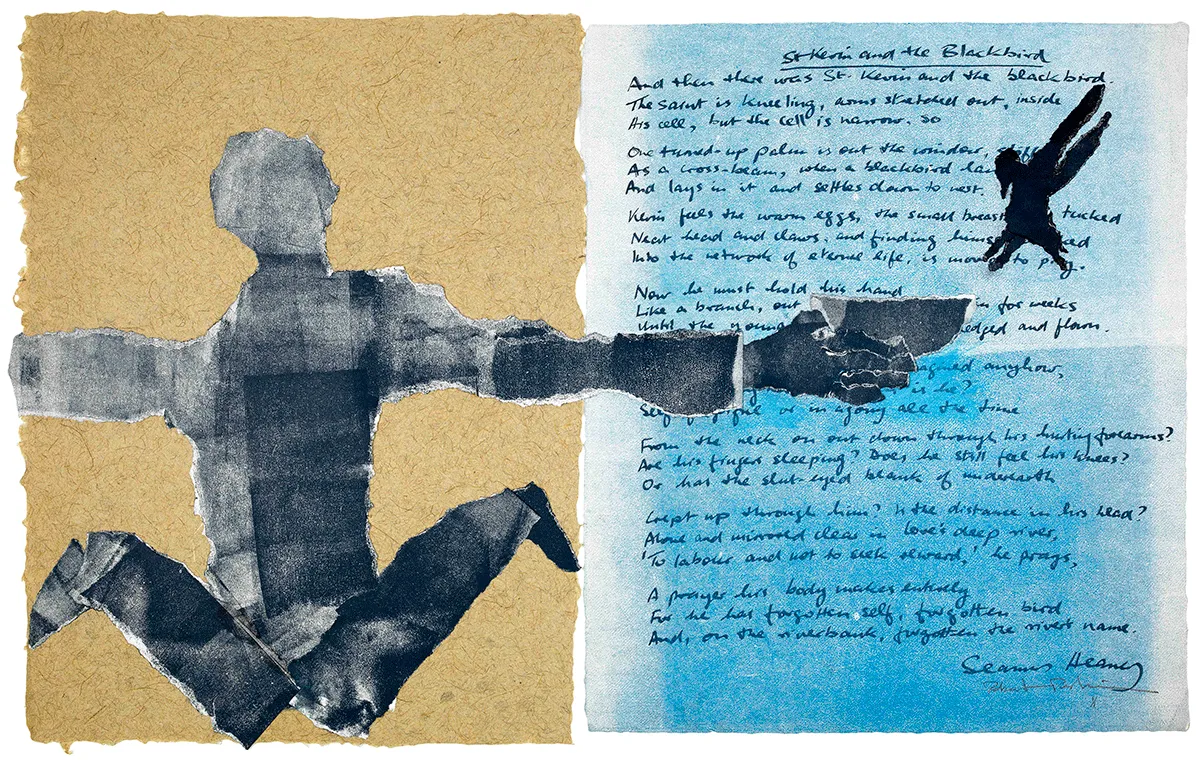 St Kevin and the Blackbird
And then there was St. Kevin and the blackbird.
The saint is kneeling, arms stretched out, inside
His cell, but the cell is narrow. So
One turned-up palm is out the window, stiff
As a cross-beam, when a blackbird
And lays in it and settles down to nest.
Kevin feels the warm eggs, the small breast tucked
Neat head and claws, and finding
Into the network of eternal life, is moved to
Now he must hold his hand
Like a branch, out for weeks
Until the and flown.
anyhow,
is he?
or in agony all the time
From the neck on out down through his hurting forearms?
Are his fingers sleeping? Does he still feel his knees?
Or has the shut-eyed blank of underearth
Crept up through him? Is the distance in his head?
Alone and mirrored clear in love's deep river,
'To labour and not to seek reward,' he prays,
A prayer his body makes entirely
For he has forgotten self, forgotten bird
And, on the riverbank, forgotten the river's name.
Seamus Heaney